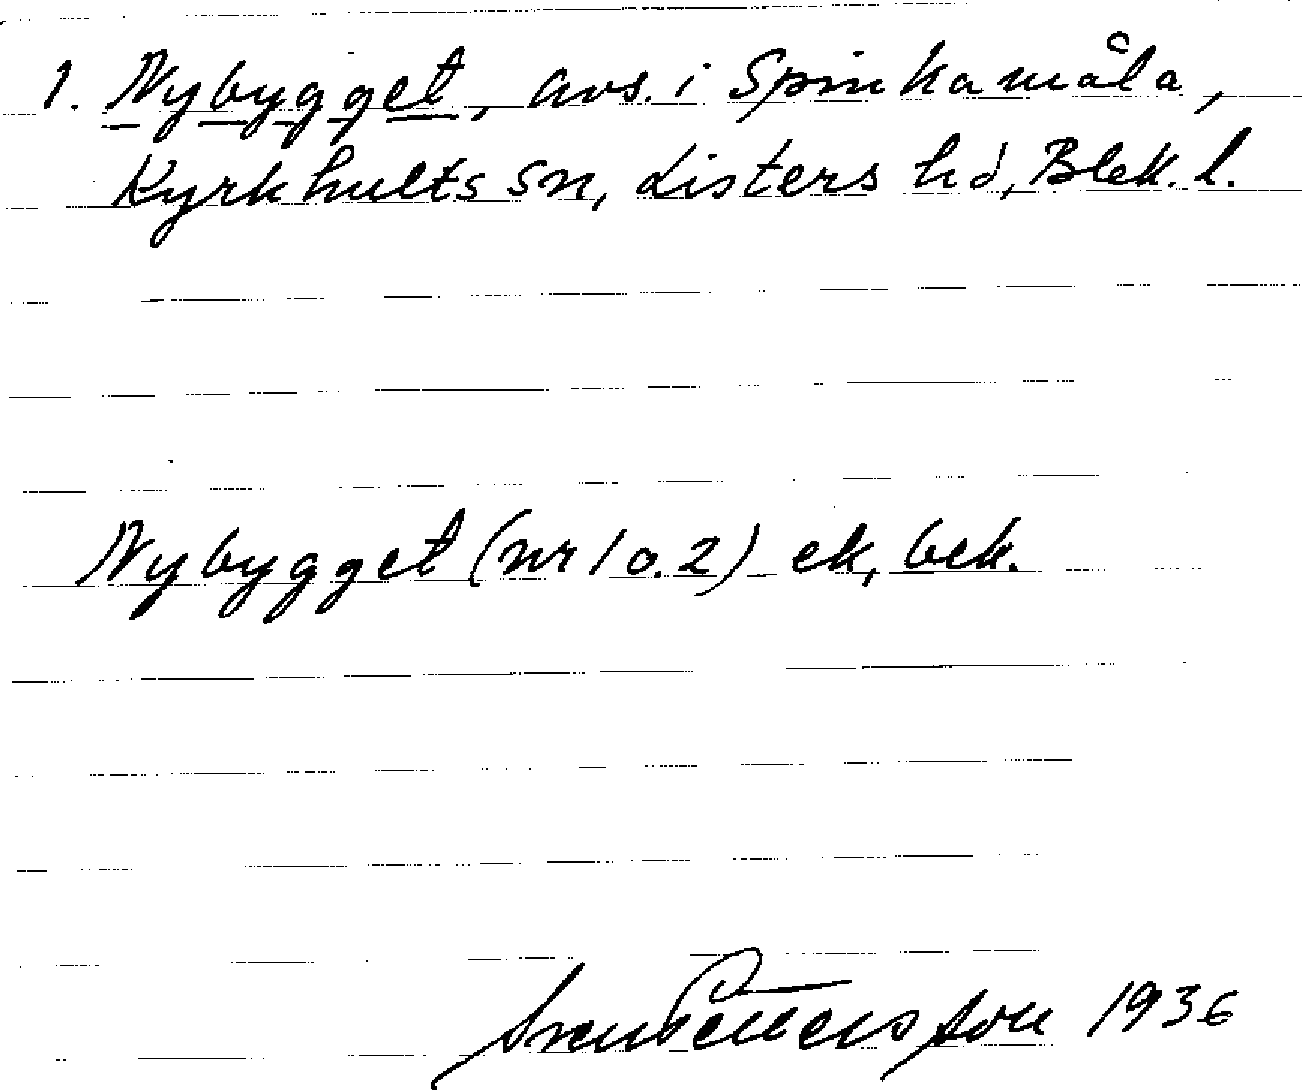 1. Nybygget, avs. i Spinkamåla,
Kyrkhults sn, Listers hd, Blek. l.
Nybygget (nr 1 o. 2) ek, bek.
Sven Pettersson 1936